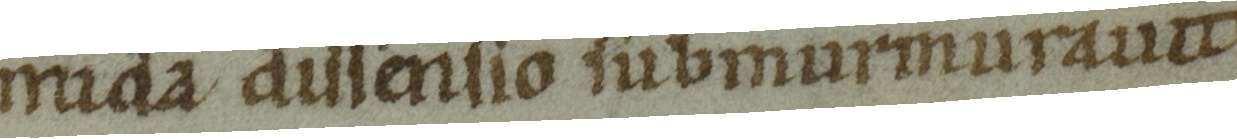 mida dissensio submurmurauit